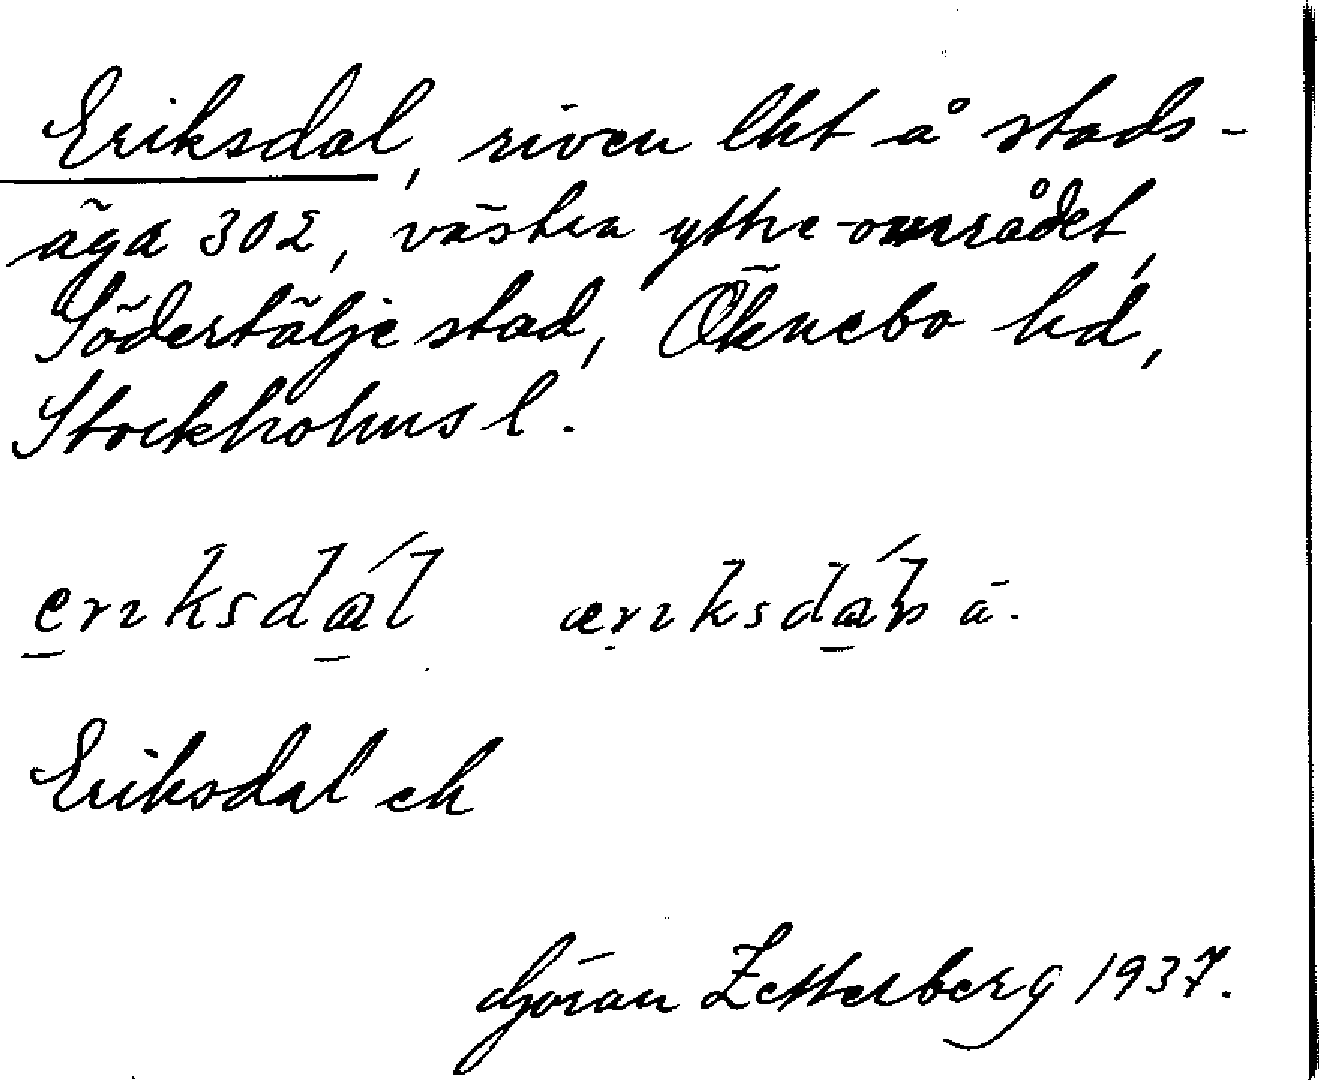 Eriksdal, riven lht å stads-
äga 302, västra yttre området,
Södertälje stad, Öknebo hd,
Stockholms l.
ä.
Eriksdal ek
Göran Zetterberg 1937.